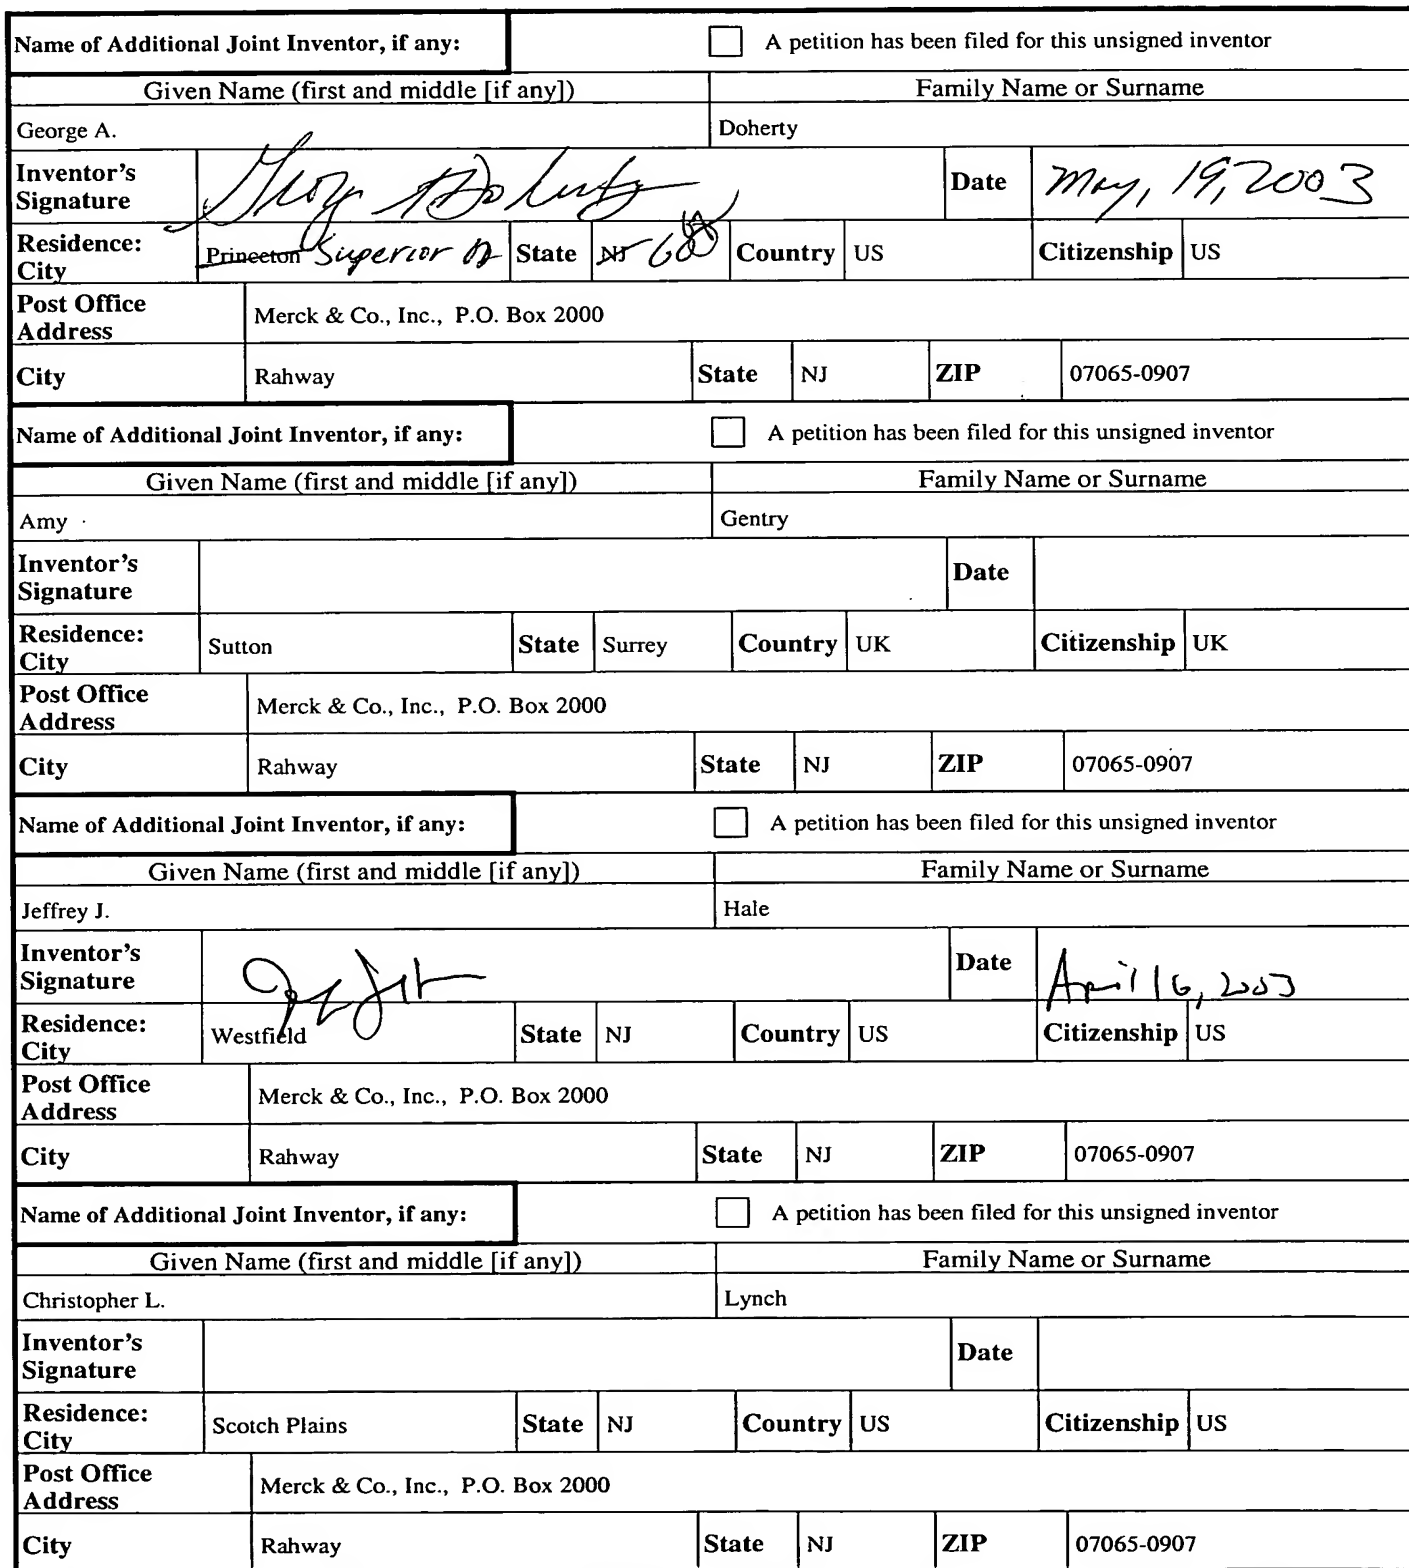 Name of Additional Joint Inventor, if any: A petition has been filed for this unsigned inventor
Given Name (first and middle [if any]) Family Name or Surname
George A. Doherty
Inventor's Signature Date May, 19, 2003
Residence: City Princeton Superior State NJ Country US Citizenship US
Post Office Address Merck & Co., Inc., P.O. Box 2000
City Rahway State NJ ZIP 07065-0907
Name of Additional Joint Inventor, if any: A petition has been filed for this unsigned inventor
Given Name (first and middle [if any]) Family Name or Surname
Amy Gentry
Inventor's Signature Date
Residence: City Sutton State Surrey Country UK Citizenship UK
Post Office Address Merck & Co., Inc., P.O. Box 2000
City Rahway State NJ ZIP 07065-0907
Name of Additional Joint Inventor, if any: A petition has been filed for this unsigned inventor
Given Name (first and middle [if any]) Family Name or Surname
Jeffrey J. Hale
Inventor's Signature Date April 16, 2003
Residence: City Westfield State NJ Country US Citizenship US
Post Office Address Merck & Co., Inc., P.O. Box 2000
City Rahway State NJ ZIP 07065-0907
Name of Additional Joint Inventor, if any: A petition has been filed for this unsigned inventor
Given Name (first and middle [if any]) Family Name or Surname
Christopher L. Lynch
Inventor's Signature Date
Residence: City Scotch Plains State NJ Country US Citizenship US
Post Office Address Merck & Co., Inc., P.O. Box 2000
City Rahway State NJ ZIP 07065-0907